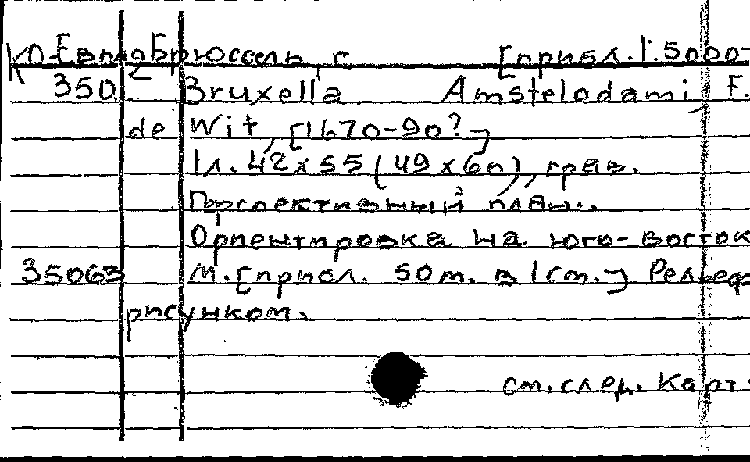 КО-Евп 2 Брюссель, г. [прибл. 1:5000-
350 Bruxella Amstelodami, F.
de Wit, [1670-90?]
1л. 42х55 (49х60), грав.
Перспективный план.
Ориентировка на юго-восток
35063 М. [прибл. 50м. в 1см.] Рельеф
рисунком.
см. след. карт